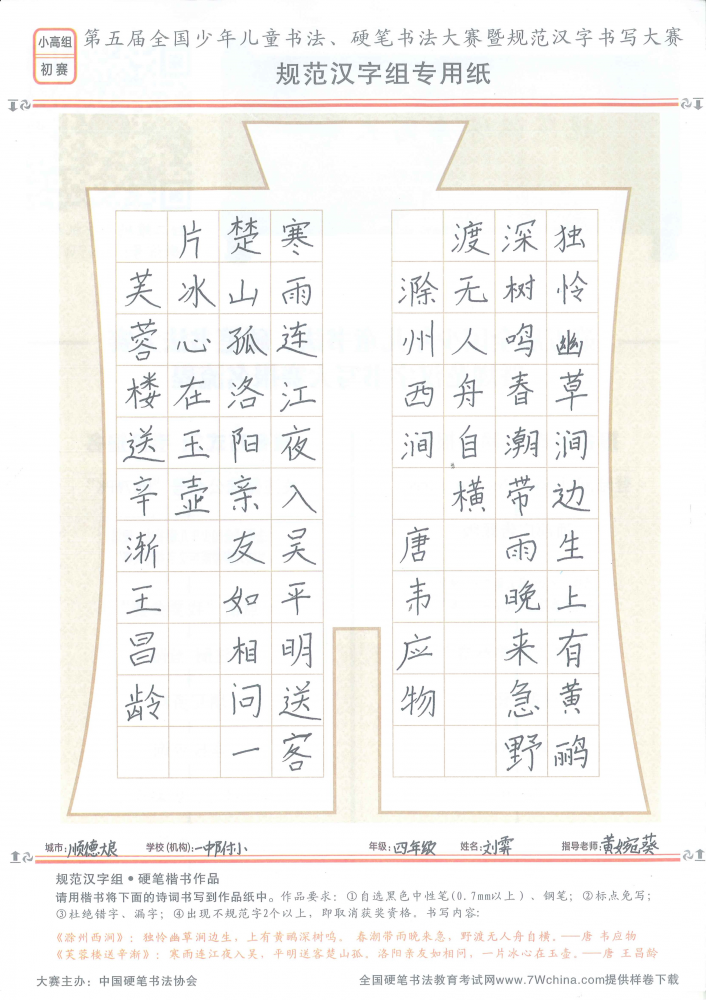 小高组
初赛
第五届全国少年儿童书法、硬笔书法大赛暨规范汉字书写大赛
规范汉字组专用纸
独怜幽草涧边生上有黄鹂
深树鸣春潮带雨晚来急野
渡无人舟自横
滁州西涧 唐韦应物
寒雨连江夜入吴平明送客
楚山孤洛阳亲友如相问一
片冰心在玉壶
芙蓉楼送辛渐王昌龄
城市:顺德大良 学校(机构):一中附小 年级:四年级 姓名:刘霁 指导老师:黄婉葵
规范汉字组•硬笔楷书作品
请用楷书将下面的诗词书写到作品纸中。作品要求:①自选黑色中性笔(0.7mm以上)、钢笔;②标点免写;
③杜绝错字、漏字;④出现不规范字2个以上,即取消获奖资格。书写内容:
《滁州西涧》:独怜幽草涧边生,上有黄鹂深树鸣。 春潮带雨晚来急,野渡无人舟自横。——唐 韦应物
《芙蓉楼送辛渐》:寒雨连江夜入吴,平明送客楚山孤。洛阳亲友如相问,一片冰心在玉壶。——唐 王昌龄
大赛主办:中国硬笔书法协会 全国硬笔书法教育考试网www.7Wchina.com提供样卷下载